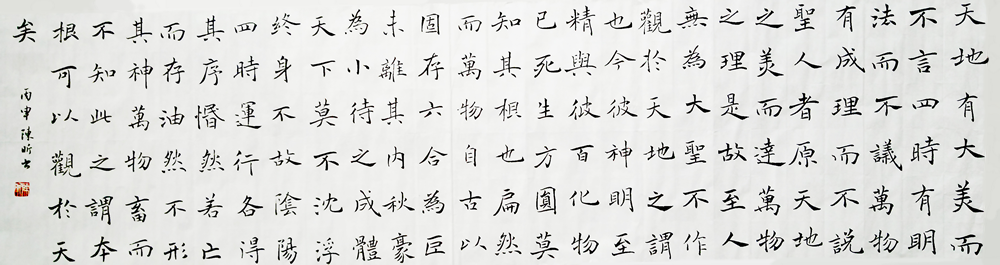 天地有大美而
不言四時有明
法而不議萬物
有成理而不說
聖人者原天地
之美而達萬物
之理是故至人
無為大聖不作
觀於天地之謂
也今彼神明至
精與彼百化物
已死生方圓莫
知其根也扁然
而萬物自古以
固存六合為巨
未離其內秋豪
為小待之成體
天下莫不沈浮
終身不故陰陽
四時運行各得
其序惛然若亡
而存油然不形
其神萬物畜而
不知此之謂本
根可以觀於天
矣
丙申陳昕书